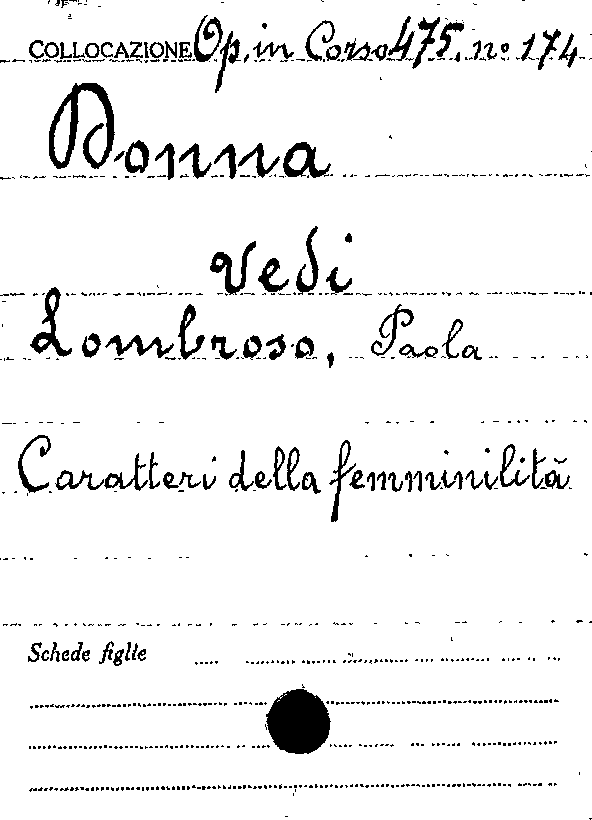 COLLOCAZIONE Op. in Corso 475. nº 174
Donna
Vedi
Lombroso, Paola
Caratteri della femminilità
Schede figlie